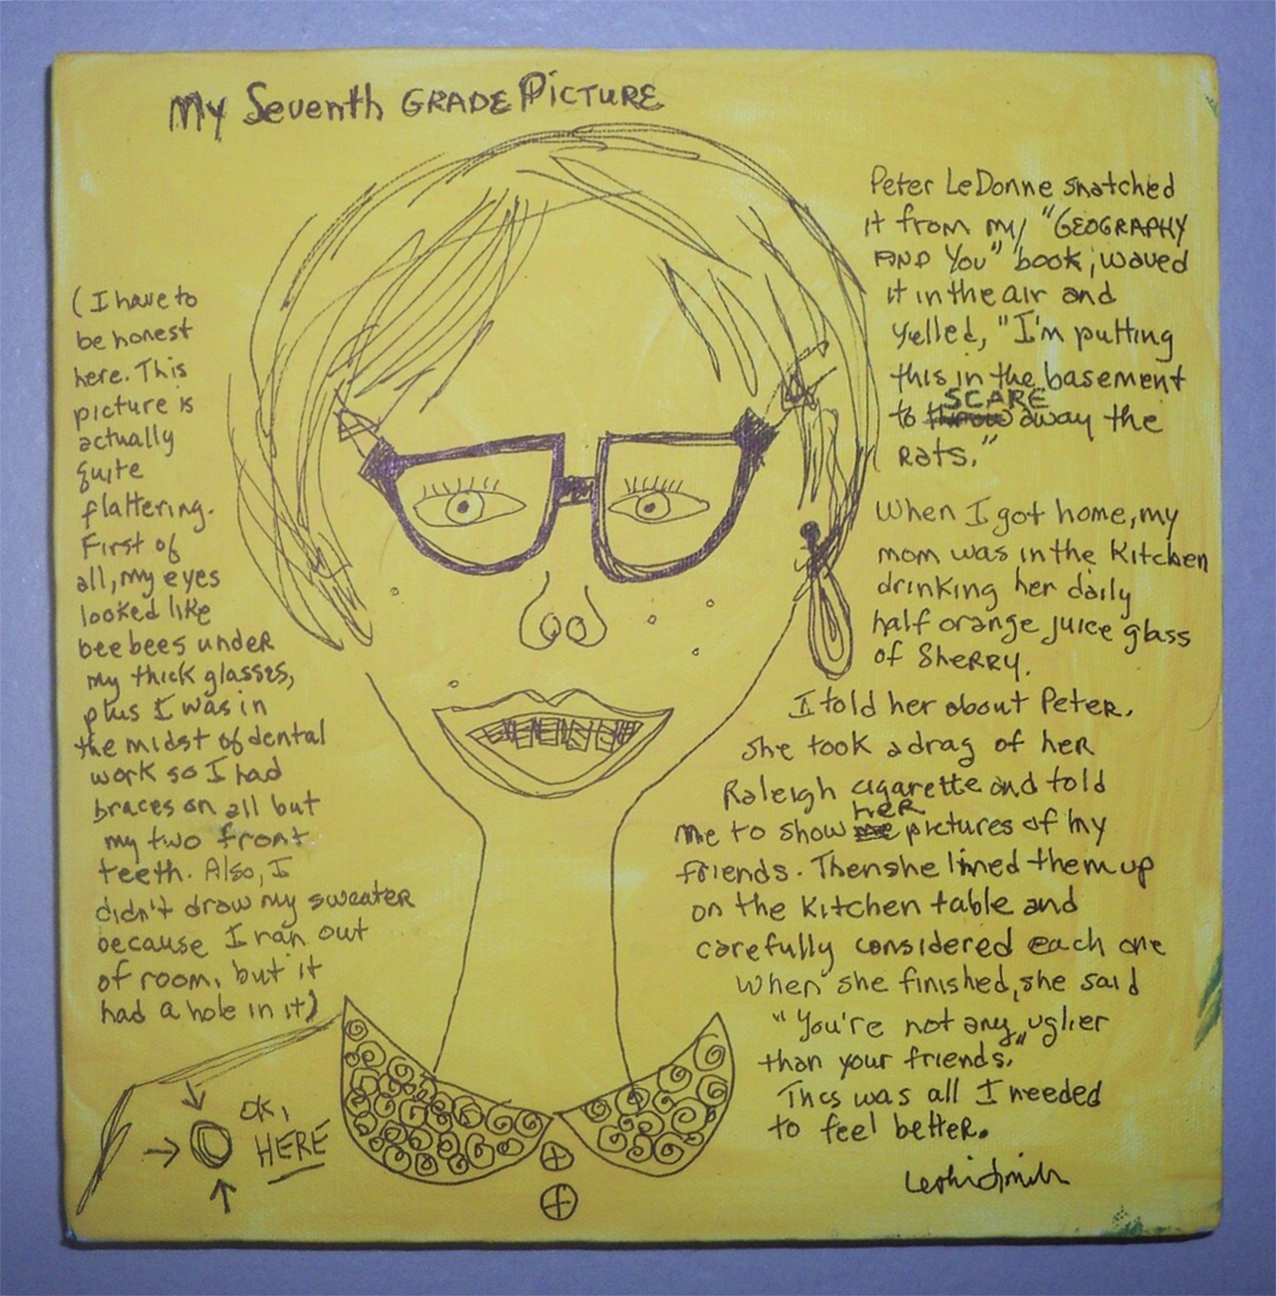 My Seventh GRADE PICTURE
(I have to
be honest
here. This
picture is
actually
quite
flattering.
First of
all, my eyes
looked like
beebees under
my thick glasses,
plus I was in
the midst of dental
work so I had
braces on all but
my two front
teeth. Also, I
didn't draw my sweater
because I ran out
of room, but it
had a hole in it)
OK,
HERE
Peter LeDonne snatched
it from my "GEOGRAPHY
AND You" book, waved
it in the air and
yelled, "I'm putting
this in the basement
SCARE
to throw away the
rats."
When I got home, my
mom was in the kitchen
drinking her daily
half orange juice glass
of SheRRy.
I told her about Peter.
She took a drag of her
Raleigh cigarette and told
her
me to show me pictures of my
friends. Then she lined them up
on the kitchen table and
carefully considered each one
When she finished, she said
"You're not any uglier
than your friends."
This was all I needed
to feel better.